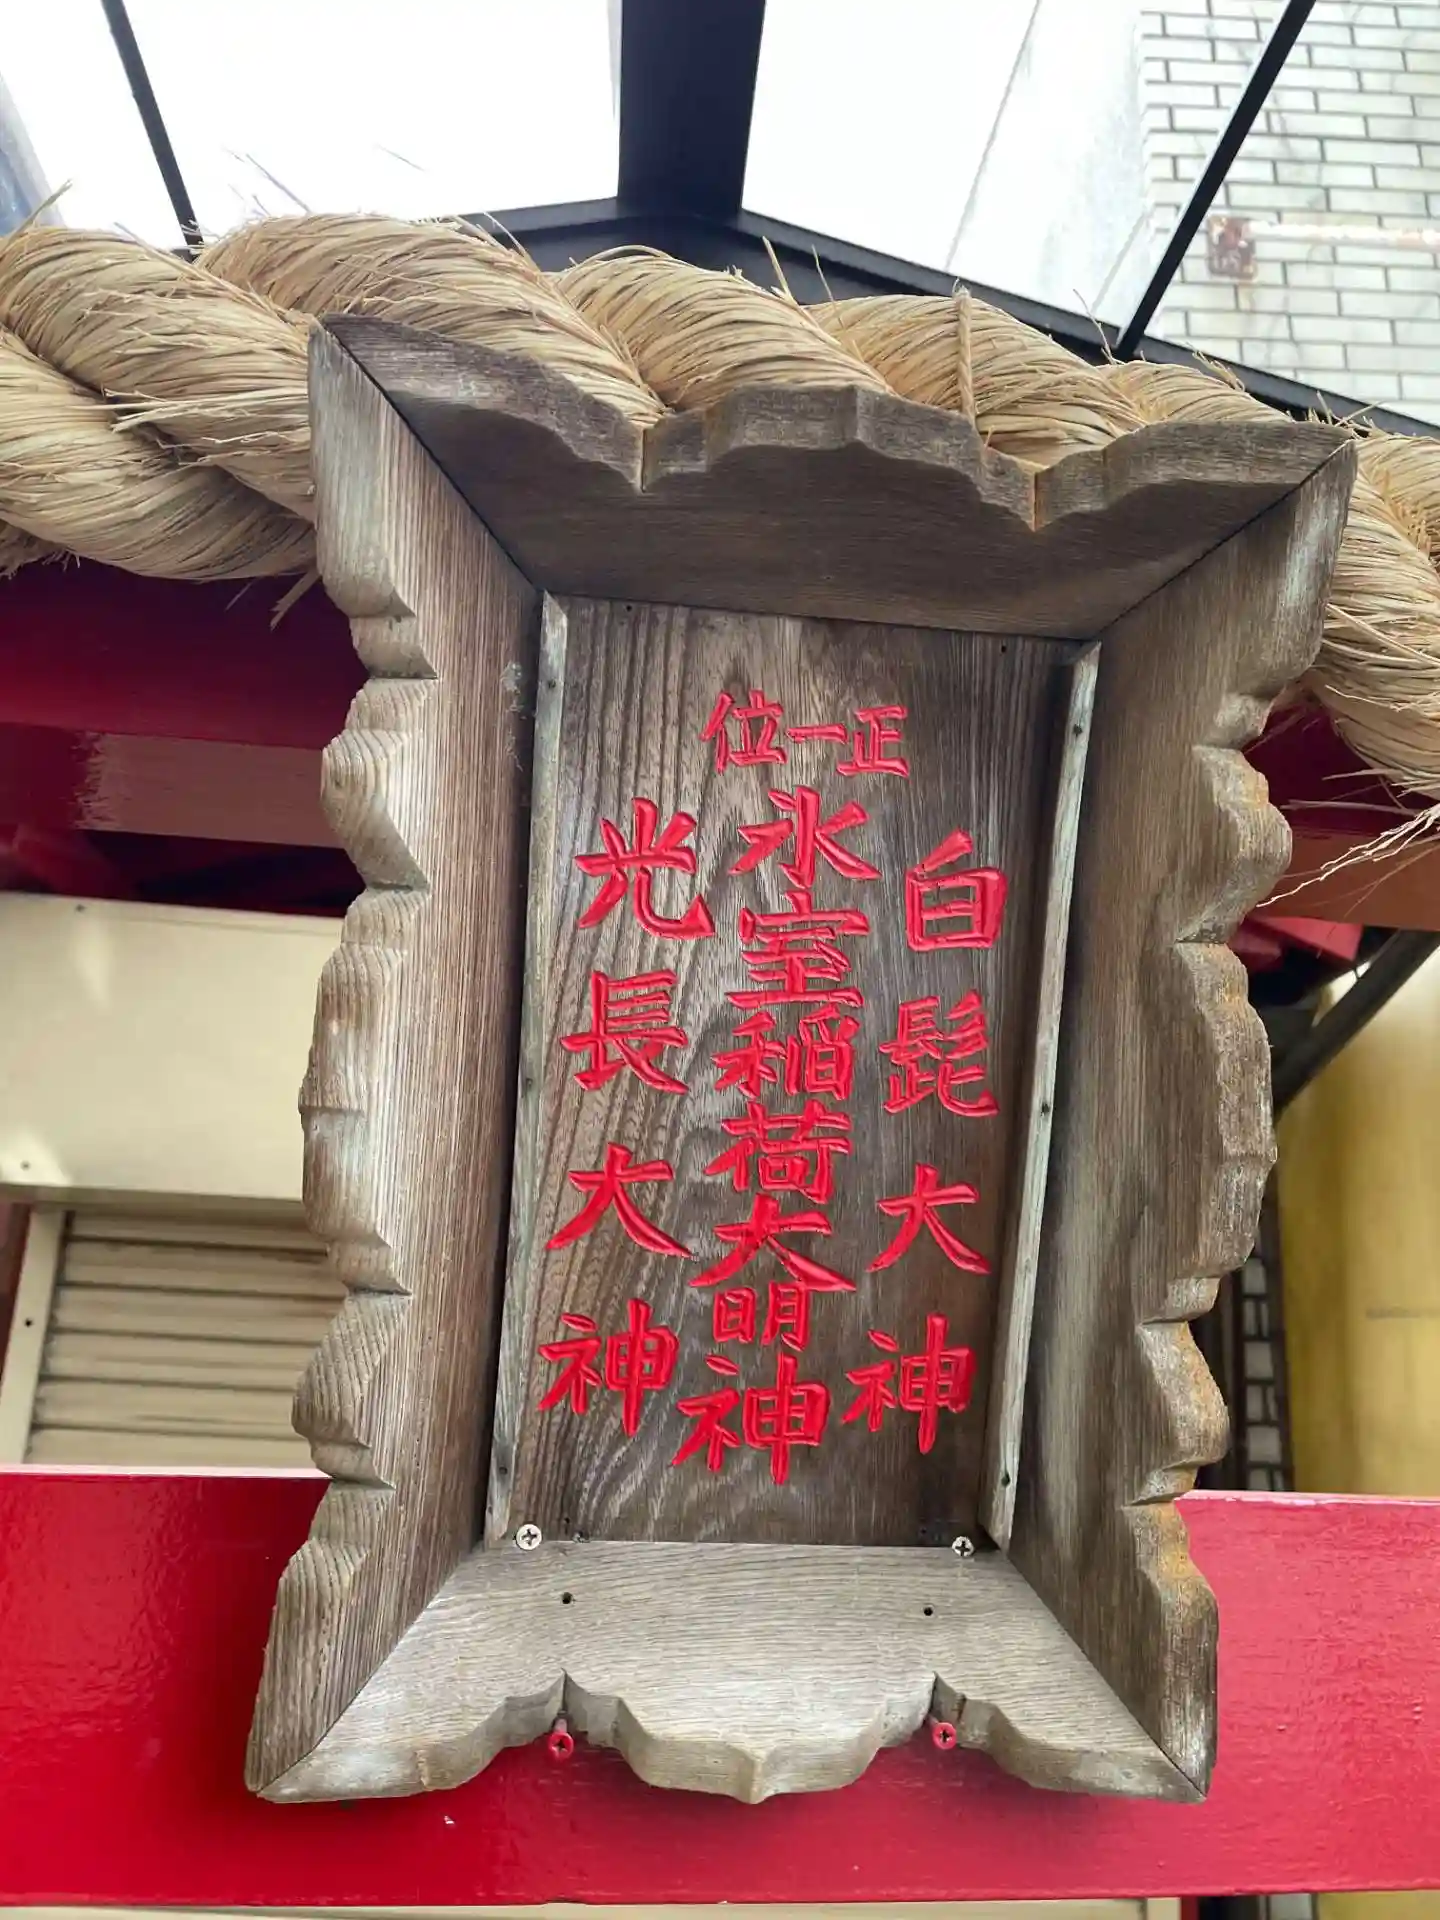 正一位
白髭大神
氷室稲荷大明神
光長大神